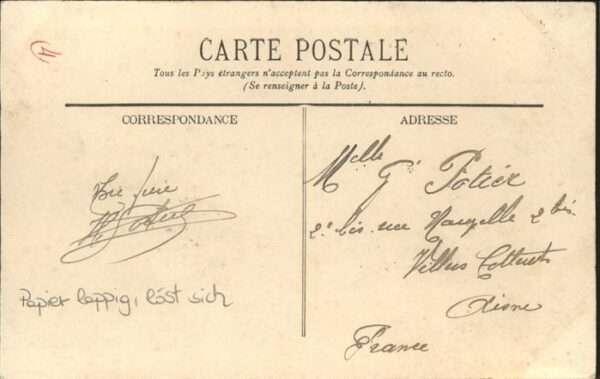 CARTE POSTALE
Tous les Pays étrangers n'acceptent pas la Correspondance au recto.
(Se renseigner à la Poste).
CORRESPONDANCE
ADRESSE
Melle G. Potier
2 bis rue 2 bis
Villers Cotterets
Aisne
France
Papier lappig, löst sich